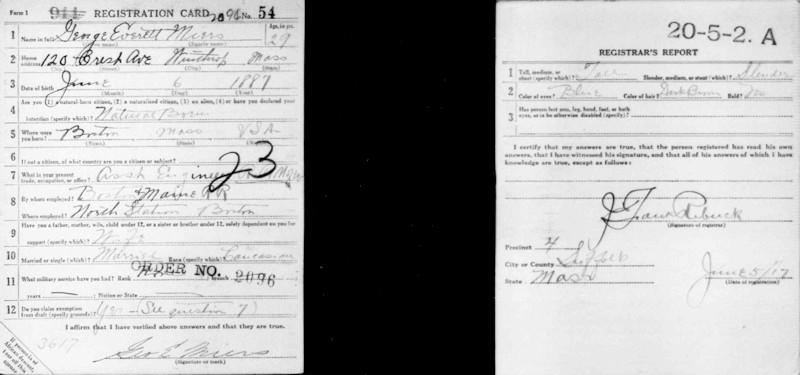 Form 1 911 REGISTRATION CARD 2096 No. 54
1 Name in full George Everett Miers Age, in yrs. 29
(Given name) (Family name)
2 Home address 120 Crest Ave Winthrop Mass
(No.) (Street) (City) (State)
3 Date of birth June 6 1887
(Month) (Day) (Year)
4 Are you (1) a natural-born citizen, (2) a naturalized citizen, (3) an alien, (4) or have you declared your
intention (specify which)? Natural Born
5 Where were you born? Boston Mass USA
(Town) (State) (Nation)
6 If not a citizen, of what country are you a citizen or subject?
7 What is your present trade, occupation, or office? Asst. Engineer
23
8 By whom employed? Boston & Maine RR
Where employed? North Station Boston
9 Have you a father, mother, wife, child under 12, or a sister or brother under 12, solely dependent on you for
support (specify which)? Wife
10 Married or single (which)? Married Race (specify which)? Caucasian
ORDER NO. 2096
11 What military service have you had? Rank branch
years Nation or State
12 Do you claim exemption from draft (specify grounds)? Yes - See question 7
I affirm that I have verified above answers and that they are true.
3617
Geo E Miers
(Signature or mark)
If person is of African descent, tear off this corner
20-5-2. A
REGISTRAR'S REPORT
1 Tall, medium, or short (specify which)? Tall Slender, medium, or stout (which)? Slender
2 Color of eyes? Blue Color of hair? Dark Brown Bald? No
3 Has person lost arm, leg, hand, foot, or both
eyes, or is he otherwise disabled (specify)?
I certify that my answers are true, that the person registered has read his own
answers, that I have witnessed his signature, and that all of his answers of which I have
knowledge are true, except as follows:
(Signature of registrar)
Precinct 4
City or County Suffolk
State Mass June 5/17
(Date of registration)